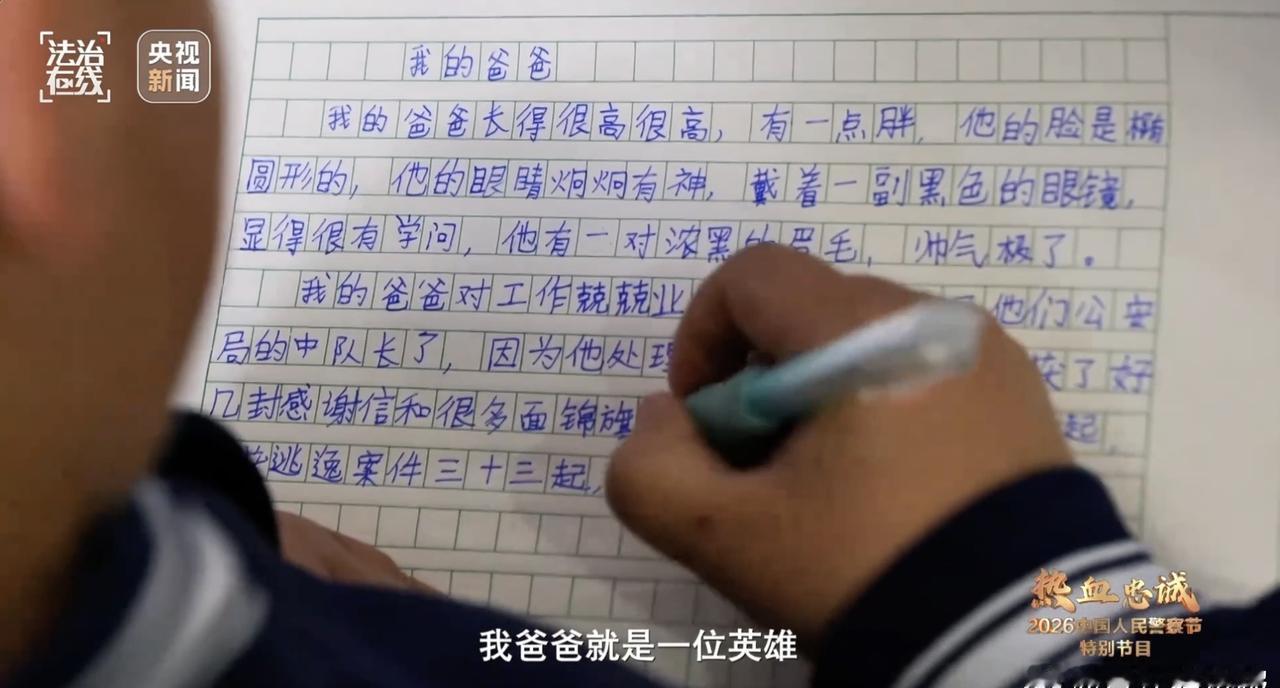 法治
在线
央视
新闻
我的爸爸
我的爸爸长得很高很高，有一点胖，他的脸是椭
圆形的，他的眼睛炯炯有神，戴着一副黑色的眼镜，
显得很有学问，他有一对浓黑的眉毛，帅气极了。
我的爸爸对工作兢兢业 他们公安
局的中队长了，因为他处理 获了好
几封感谢信和很多面锦旗 起，
逃逸案件三十三起，
我爸爸就是一位英雄
热血忠诚
2026中国人民警察节
特别节目